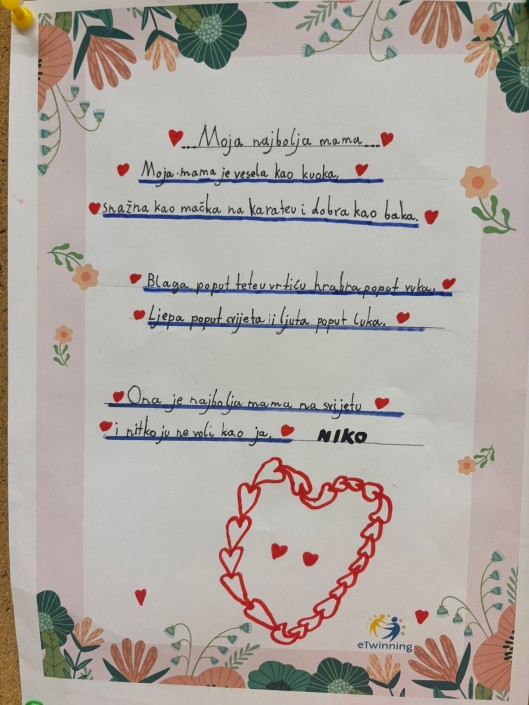 Moja najbolja mama
Moja mama je vesela kao kvoka,
snažna kao mačka na karateu i dobra kao baka.
Blaga poput tete u vrtiću hrabra poput vuka.
Ljepa poput cvijeta i ljuta poput luka.
Ona je najbolja mama na svijetu
i nitko ju ne voli kao ja.
NIKO
eTwinning